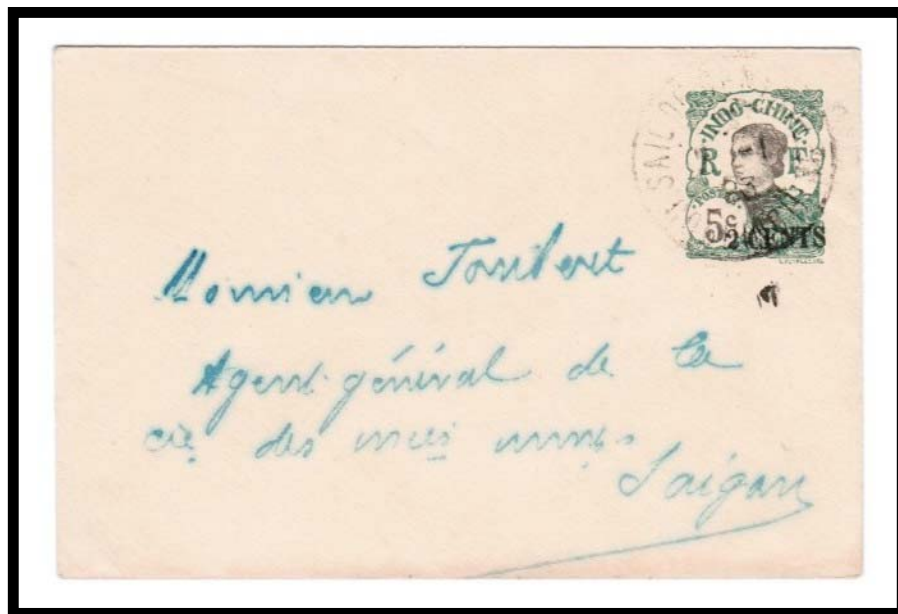 INDO-CHINE
R F
POSTES
5c.
2 CENTS
Monsieur Joubert
Agent général de la
cie des mes mmes
Saigon